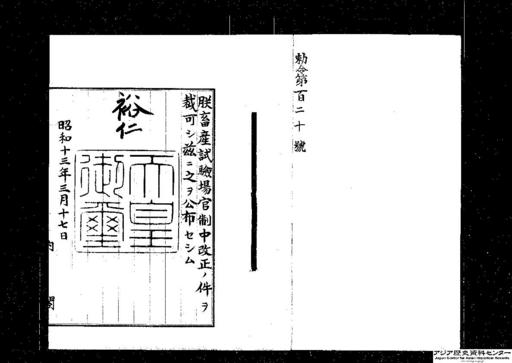 勅令第百二十號
朕畜産試驗場官制中改正ノ件ヲ
裁可シ茲ニ之ヲ公布セシム
裕仁
天皇御璽
昭和十三年三月十七日
内閣
アジア歴史資料センター
Japan Center for Asian Historical Records